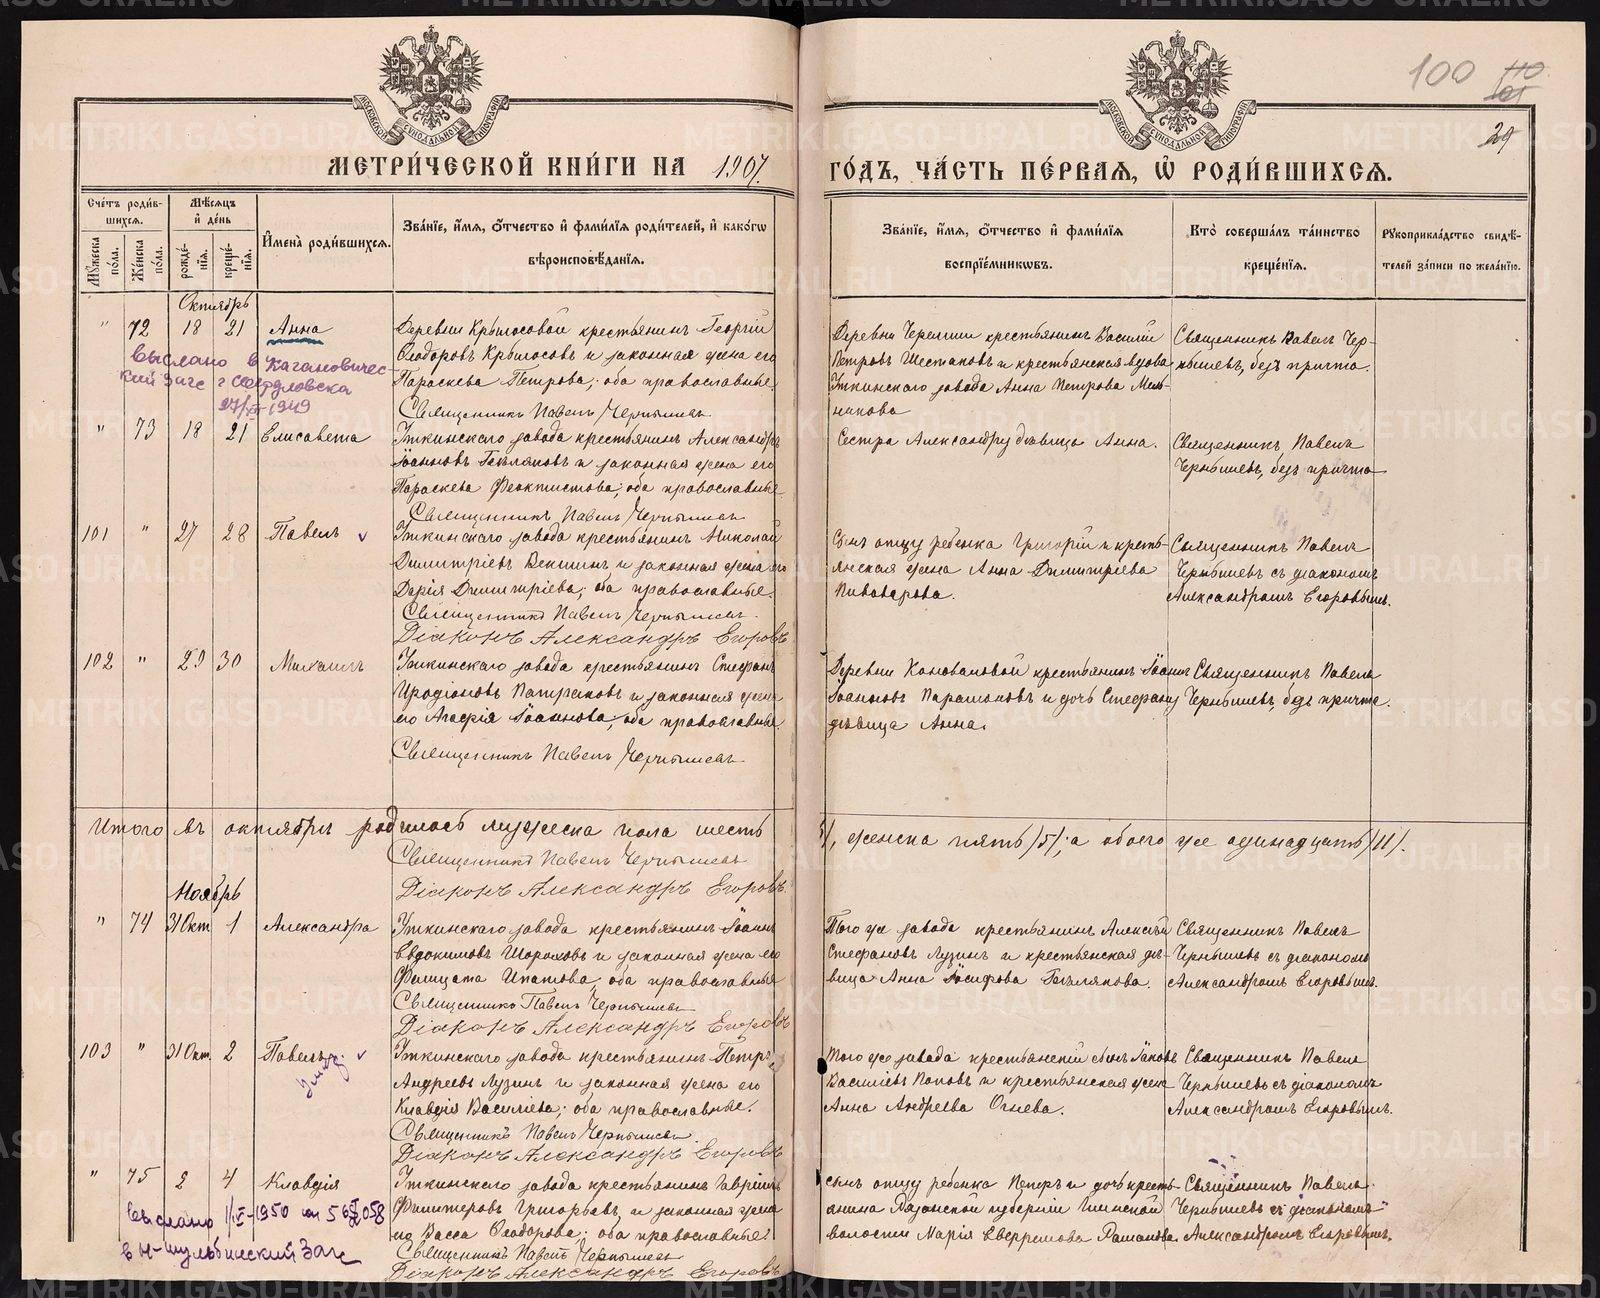 100 110
101
29
МЕТРИ́ЧЕСКОЙ КНИ́ГИ НА 1907.
ГО́ДЪ, ЧА́СТЬ ПЕ́РВАѦ, Ѡ҆ РОДИ́ВШИХСѦ.
Сче́тъ роди́вшихсѧ.
Мѣ́сѧцъ и҆ де́нь
Мꙋ́жеска по́ла.
Же́нска по́ла.
рожде́нїѧ.
креще́нїѧ.
И҆мена̀ роди́вшихсѧ.
Зва́нїе, и҆́мѧ, ѻ҆́тчество и҆ фами́лїѧ роди́телей, и҆ како́гѡ
вѣроисповѣ́данїѧ.
Зва́нїе, и҆́мѧ, ѻ҆́тчество и҆ фами́лїѧ
воспрїе́мникѡвъ.
Кто̀ соверша́лъ та́инство
креще́нїѧ.
Рꙋкоприкла́дство свидѣ́-
телей за́писи по жела́нїю.
Октябрь
" 72 18 21 Анна
Деревни Крылосовой крестьянинъ Георгій
Ѳеодоровъ Крылосовъ и законная жена его
Параскева Петрова; оба православные.
Священникъ Павелъ Чернышевъ
Деревни Черемши крестьянинъ Василій
Петровъ Шестаковъ и крестьянская вдова
Уткинскаго завода Анна Петрова Мель-
никова
Священникъ Павелъ Чер-
нышевъ, безъ причта.
Выслано в Кагановичес-
кий Загс г Свердловска
1949
" 73 18 21 Елисавета
Уткинскаго завода крестьянинъ Александръ
Іоанновъ Гилляковъ и законная жена его
Параскева Феоктистова; оба православные
Священникъ Павелъ Чернышевъ
Сестра Александру дѣвица Анна.
Священникъ Павелъ
Чернышевъ, безъ причта
101 " 27 28 Павелъ v
Уткинскаго завода крестьянинъ Николай
Димитріевъ Векшинъ и законная жена его
Дарія Димитріева; оба православные.
Священникъ Павелъ Чернышевъ
Діаконъ Александръ Егоровъ
Сынъ отцу ребенка Григорій и кресть-
янская жена Анна Димитріева
Пивоварова.
Священникъ Павелъ
Чернышевъ съ діакономъ
Александромъ Егоровымъ.
102 " 29 30 Михаилъ
Уткинскаго завода крестьянинъ Стефанъ
Иродіоновъ Патраковъ и законная жена
его Агафія Іоаннова, оба православные
Священникъ Павелъ Чернышевъ
Деревни Коноваловой крестьянинъ Іоаннъ
Іоанновъ Парамоновъ и дочь Стефану
дѣвица Анна.
Священникъ Павелъ
Чернышевъ, безъ причта.
Итого въ октябрѣ родилось мужеска пола шесть
женска пять /5/, а обоего же одинадцать /11/.
Священникъ Павелъ Чернышевъ
Діаконъ Александръ Егоровъ
Ноябрь
" 74 31 Окт. 1 Александра
Уткинскаго завода крестьянинъ Іоаннъ
Евдокимовъ Шороховъ и законная жена его
Фелицата Ипатова, оба православные
Священникъ Павелъ Чернышевъ
Діаконъ Александръ Егоровъ
Того же завода крестьянинъ Алексѣй
Стефановъ Лузинъ и крестьянская дѣ-
вица Анна Іосифова Гиллякова.
Священникъ Павелъ
Чернышевъ съ діакономъ
Александромъ Егоровымъ.
103 " 31 Окт. 2 Павелъ v
Уткинскаго завода крестьянинъ Петръ
Андреевъ Лузинъ и законная жена его
Клавдія Василіева; оба православные.
Священникъ Павелъ Чернышевъ
Діаконъ Александръ Егоровъ
Того же завода крестьянскій сынъ Іаковъ
Василіевъ Поповъ и крестьянская жена
Анна Андреева Огнева.
Священникъ Павелъ
Чернышевъ съ діакономъ
Александромъ Егоровымъ.
" 75 2 4 Клавдія
Уткинскаго завода крестьянинъ Гавріилъ
Филитеровъ Григорьевъ и законная жена
его Васса Ѳеодорова; оба православные
Священникъ Павелъ Чернышевъ
Діаконъ Александръ Егоровъ
Сынъ отцу ребенка Петръ и дочь кресть-
янина Рязанской губерніи
волости Марія
Священникъ Павелъ
Чернышевъ съ діакономъ
Александромъ Егоровымъ.
Выслано 1950
Загс
METRIKI.GASO-URAL.RU